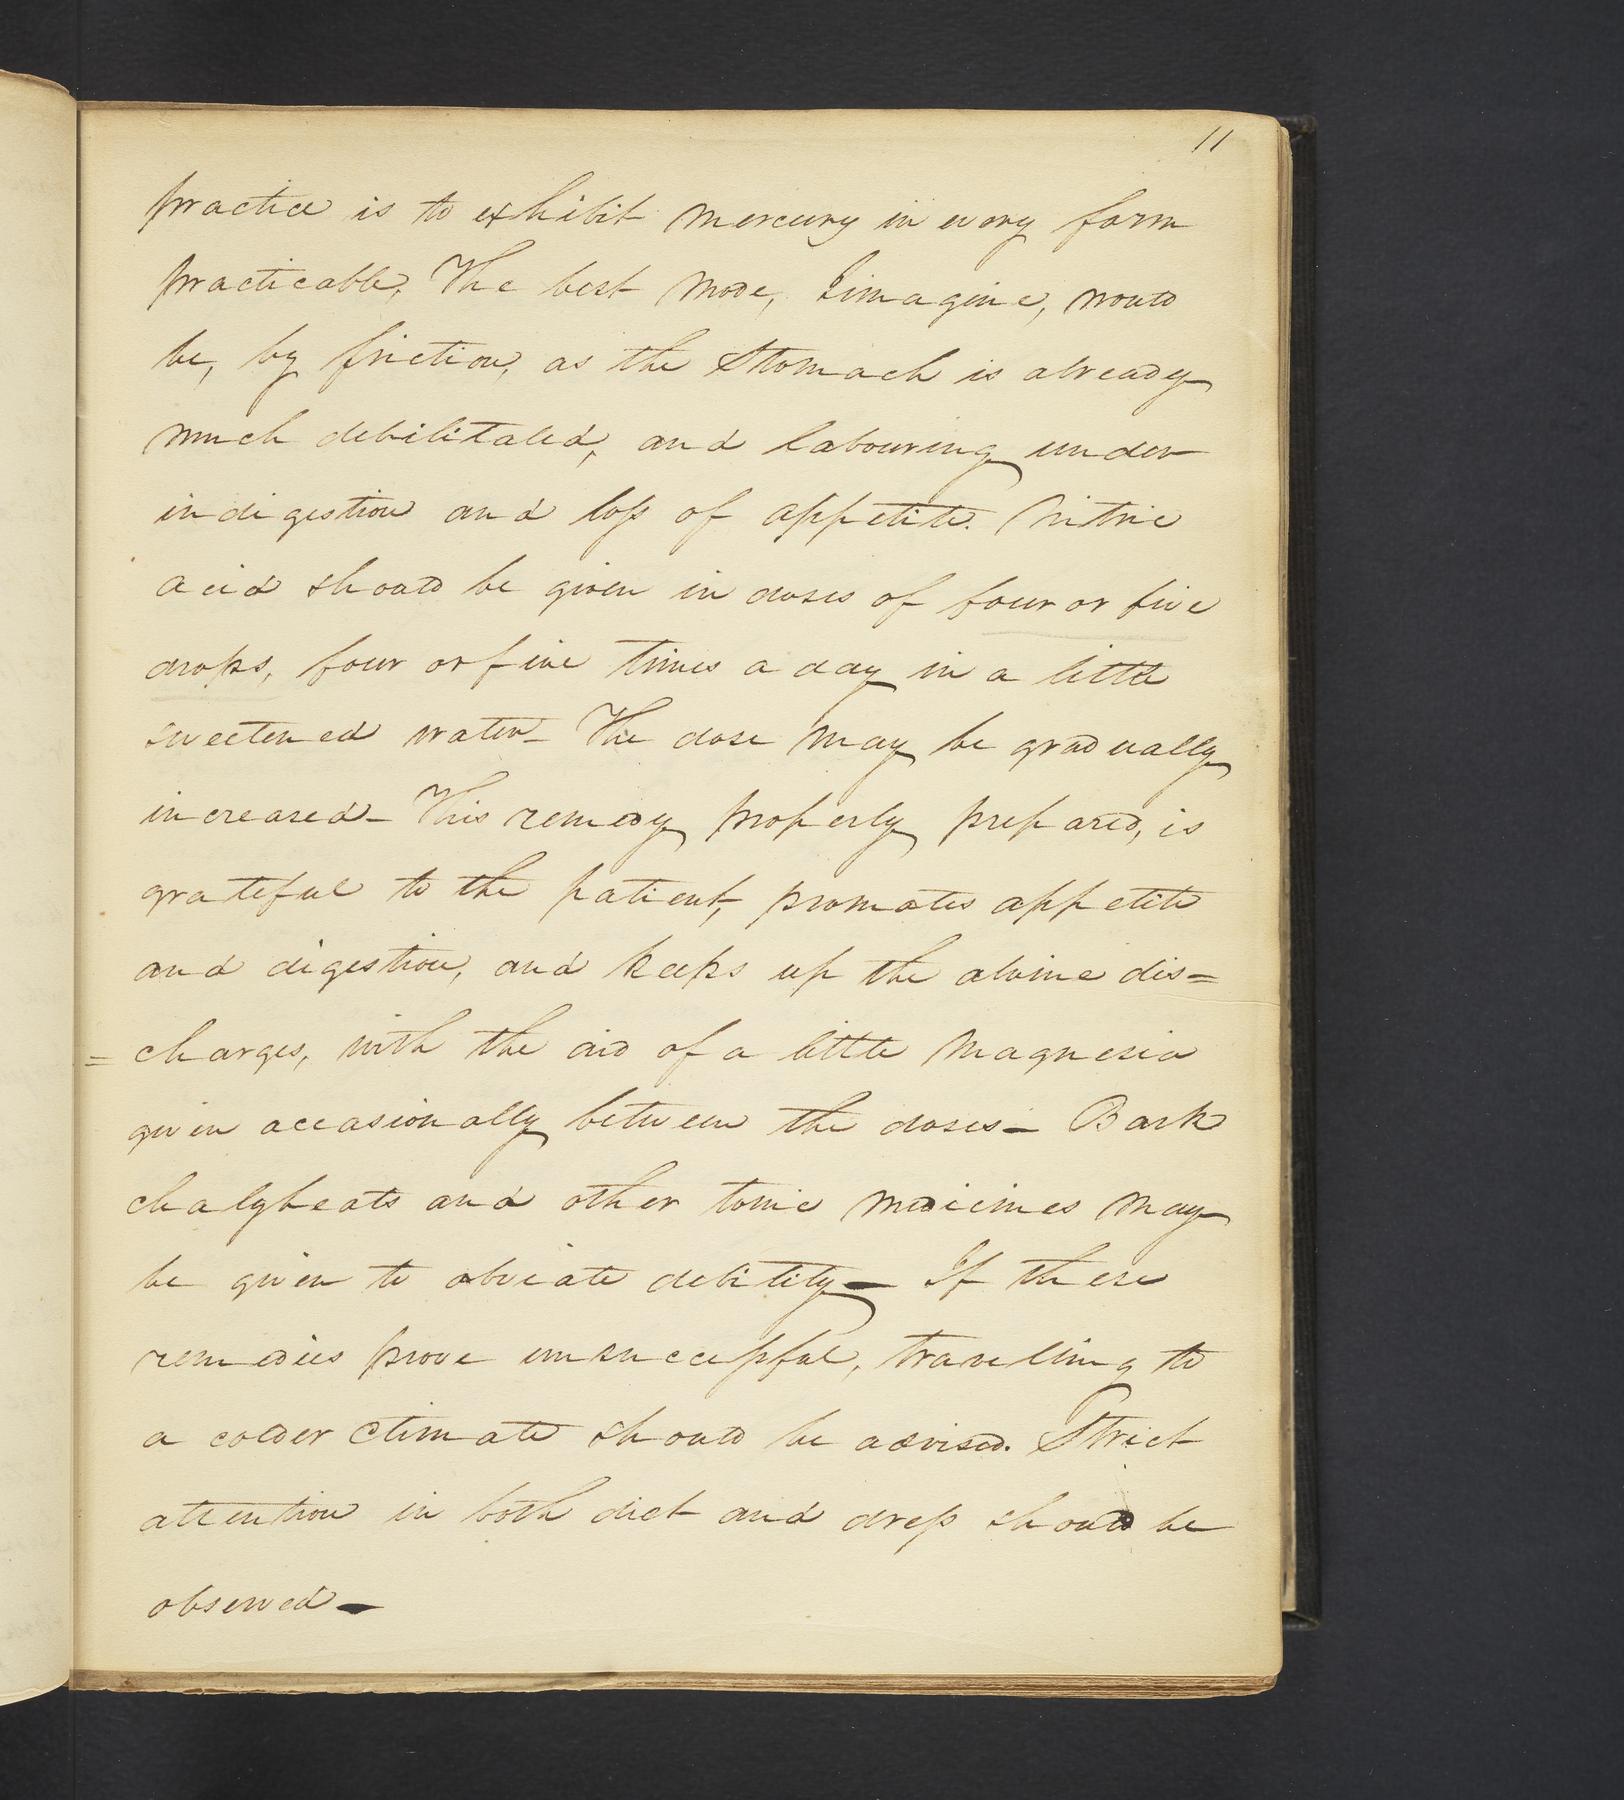 11
practice is to exhibit mercury in every form
practicable. The best mode, I imagine, would
be, by friction, as the Stomach is already
much debilitated, and labouring under
indigestion and loss of appetite. Nitric
acid should be given in doses of four or five
drops, four or five times a day in a little
sweetened water – The dose may be gradually
increased – This remedy properly prepared, is
grateful to the patient, promotes appetite
and digestion, and keeps up the alvine dis=
= charges, with the aid of a little magnesia
given occasionally between the doses – Bark
chalybeats and other tonic medicines may
be given to obviate debility – If these
remedies prove unsuccessful, travelling to
a colder climate should be advised. Strict
attention in both diet and dress should be
observed –